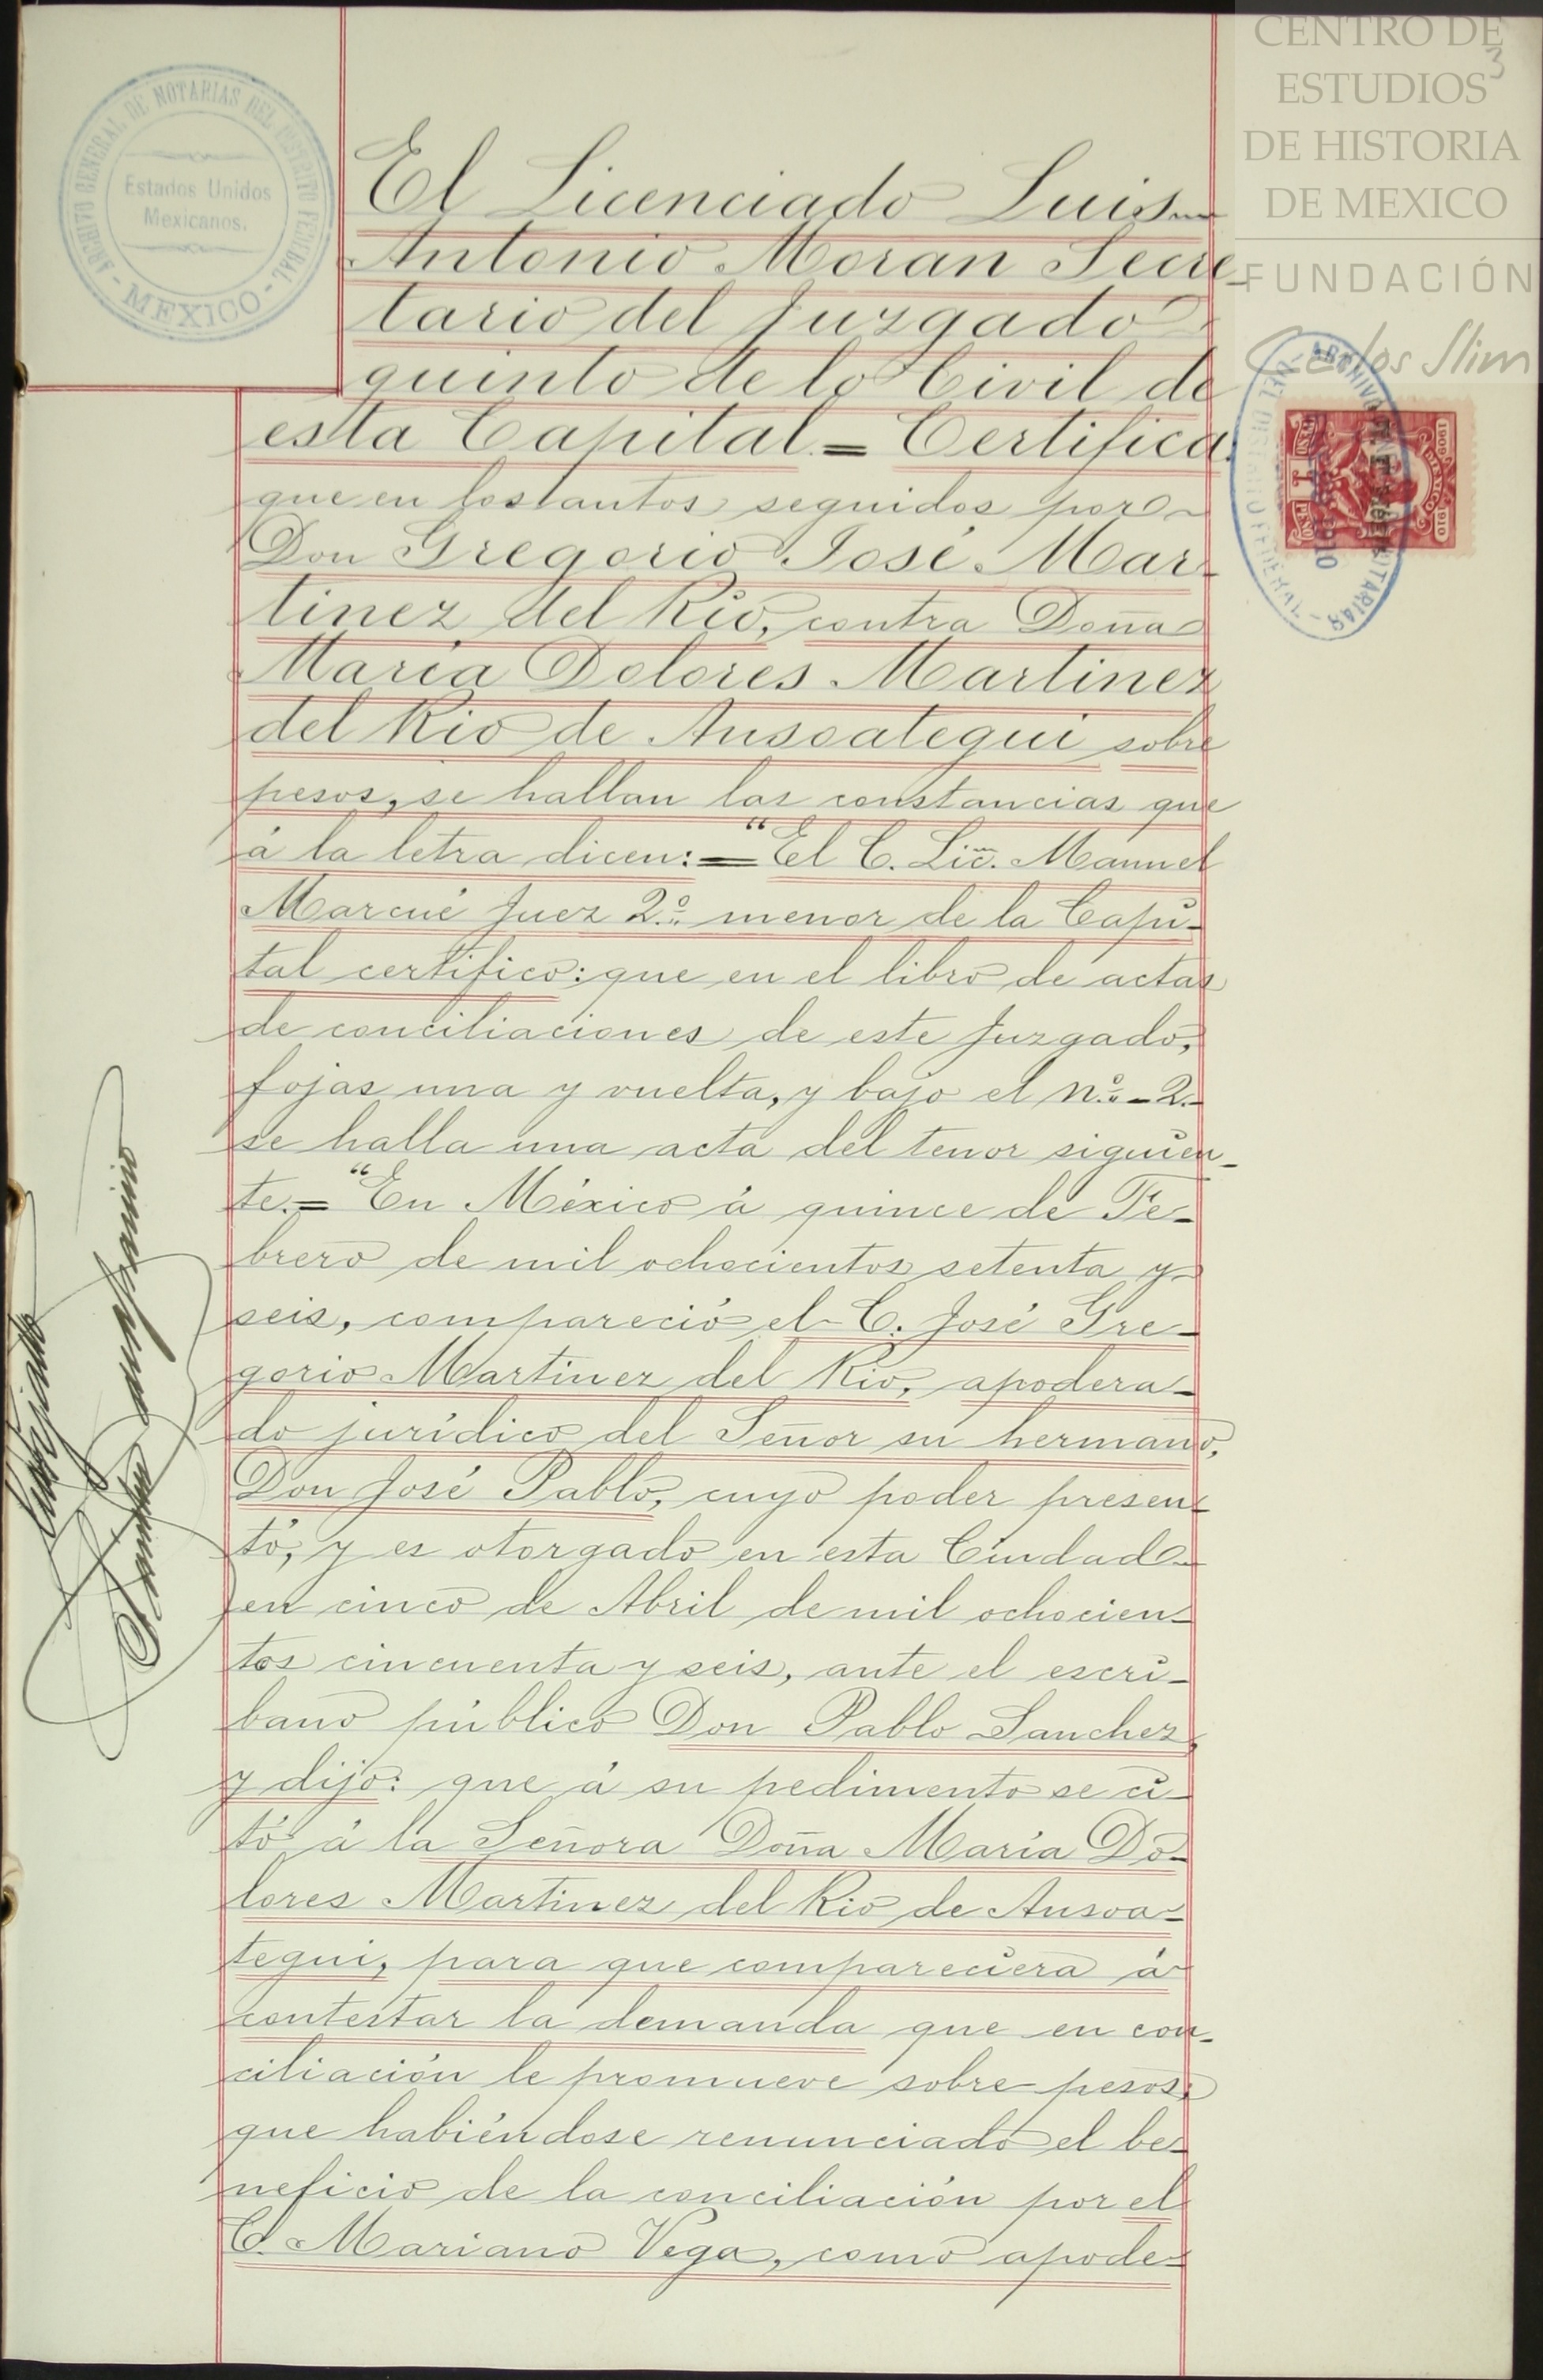 CENTRO DE
ESTUDIOS
DE HISTORIA
DE MEXICO
FUNDACIÓN
Carlos Slim
3
ARCHIVO GENERAL DE NOTARIAS DEL DISTRITO FEDERAL
Estados Unidos
Mexicanos.
- MEXICO -
El Licenciado Luis
Antonio Moran Secre-
tario del Juzgado
quinto de lo Civil de
esta Capital = Certifica:
que en los autos seguidos por
Don Gregorio José Mar-
tinez del Rio, contra Doña
María Dolores Martinez
del Rio de Ansoategui sobre
pesos, se hallan las constancias que
á la letra dicen: = "El C. Lic. Manuel
Marcué Juez 2º menor de la Capi-
tal certifico: que en el libro de actas
de conciliaciones de este Juzgado,
fojas una y vuelta, y bajo el nº - 2.
se halla una acta del tenor siguien-
te. = "En México á quince de Fe-
brero de mil ochocientos setenta y
seis, compareció el C. José Gre-
gorio Martinez del Rio, apodera-
do jurídico del Señor su hermano,
Don José Pablo, cuyo poder presen-
tó, y es otorgado en esta Ciudad
en cinco de Abril de mil ochocien-
tos cincuenta y seis, ante el escri-
bano público Don Pablo Sanchez,
y dijo: que á su pedimento se ci-
tó á la Señora Doña María Do-
lores Martinez del Rio de Ansoa-
tegui, para que compareciera á
contestar la demanda que en con-
ciliación le promueve sobre pesos,
que habiéndose renunciado el be-
neficio de la conciliación por el
C. Mariano Vega, como apode-
ARCHIVO NOTARIAS
DEL DISTRITO FEDERAL
1909 MEXICO 1910
UN PESO